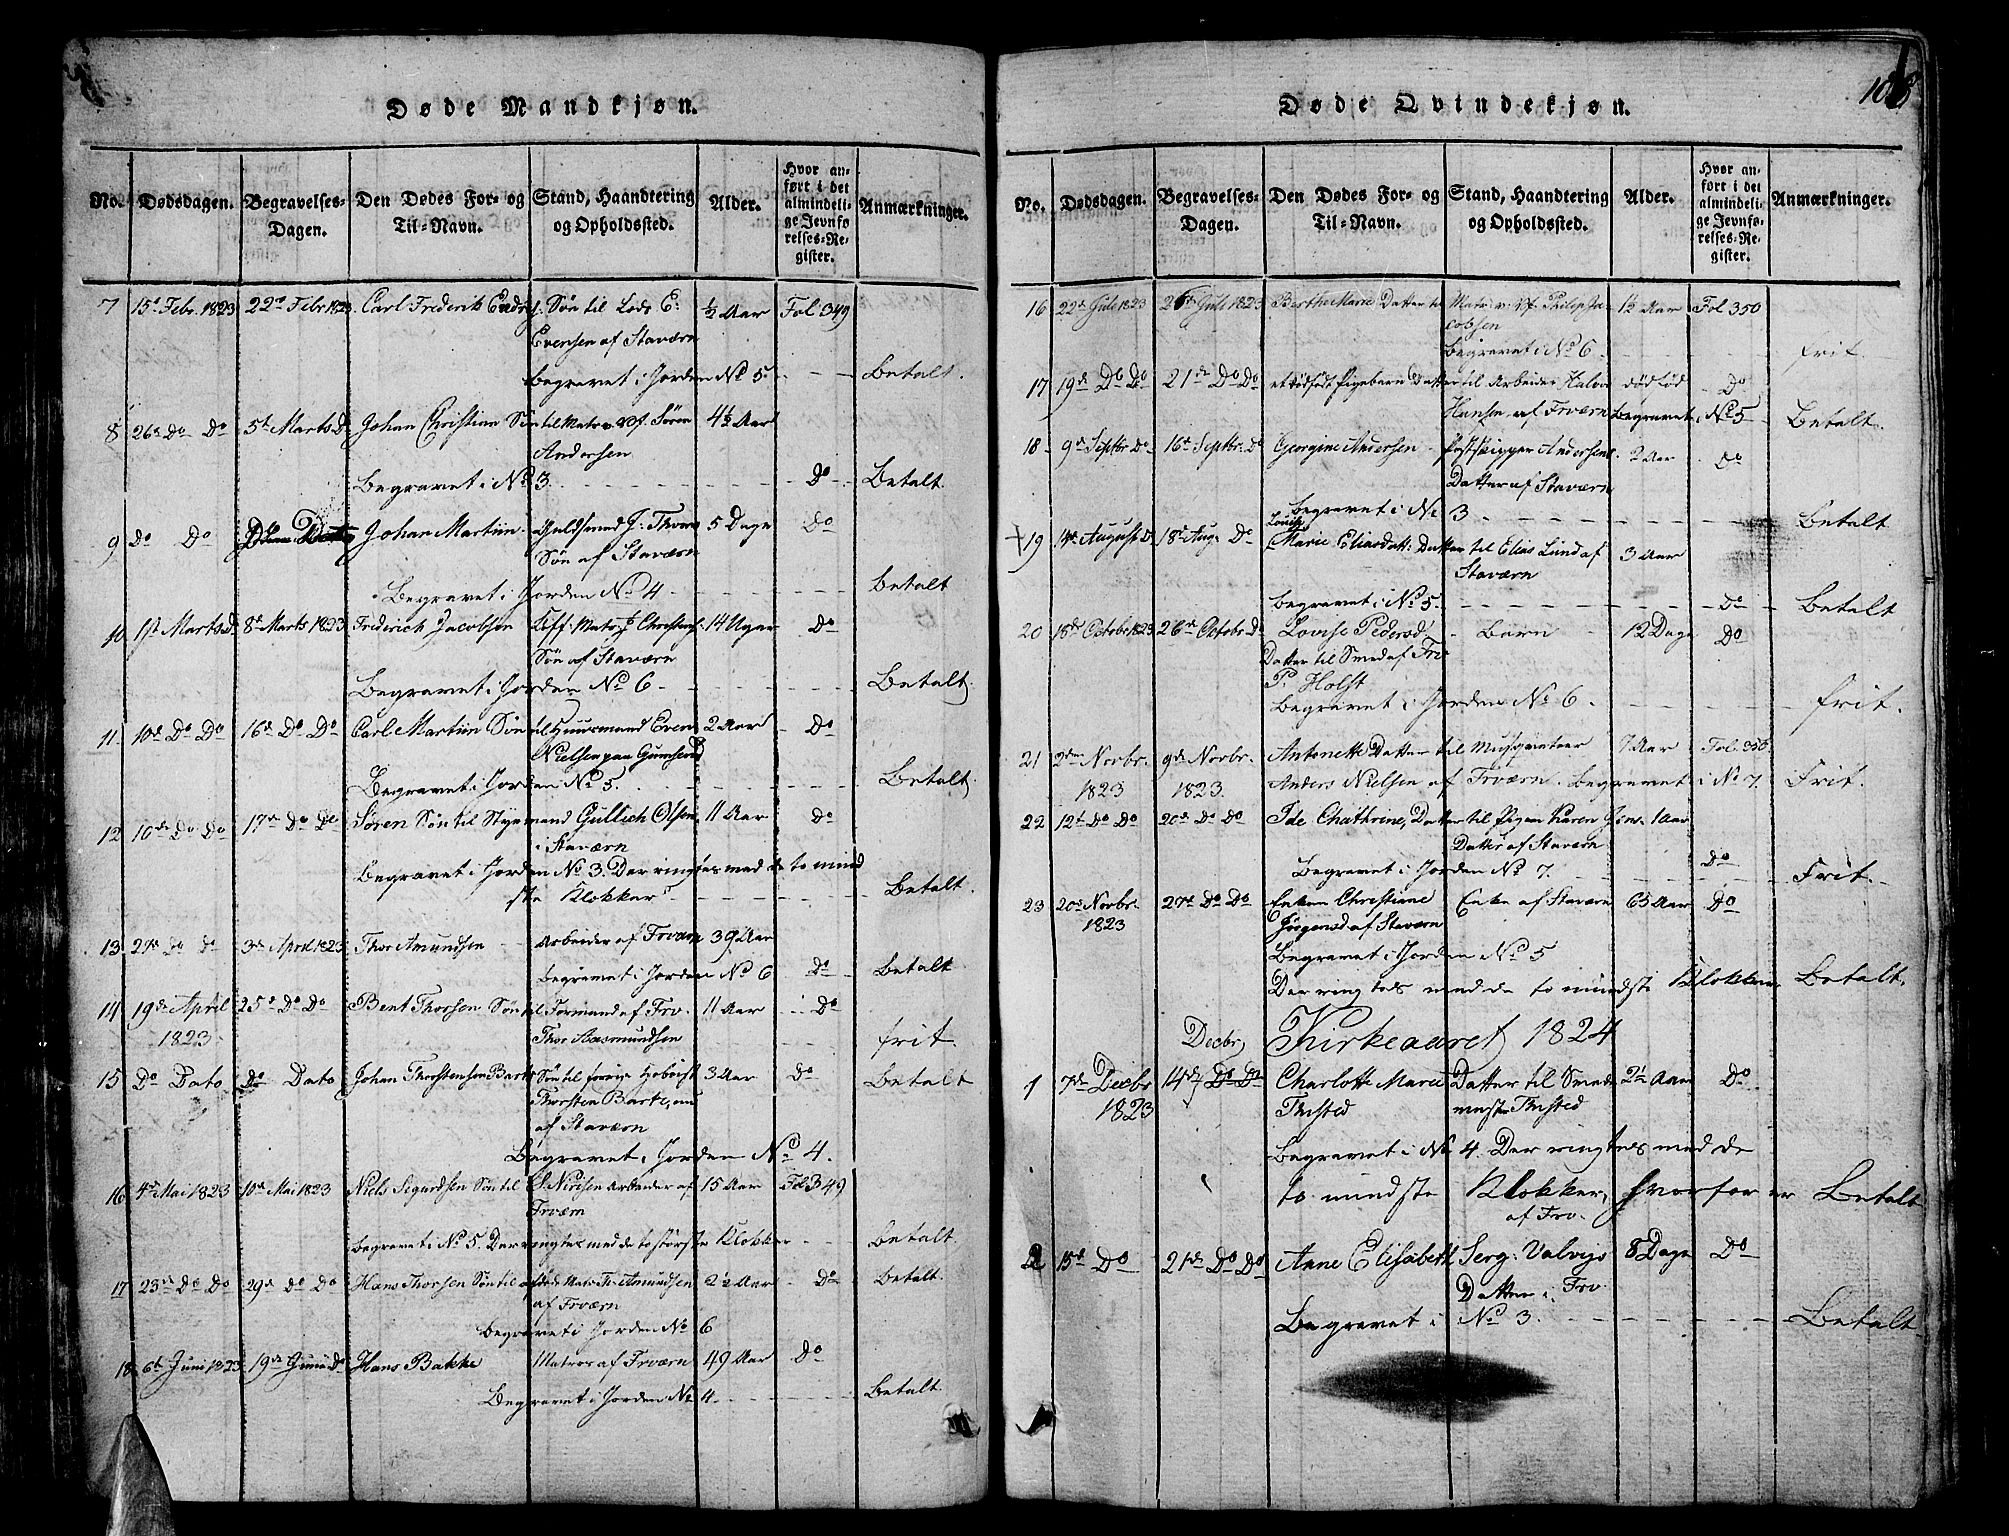 Døde Mandkjøn.
No. Dødsdagen. Begravelses-Dagen. Den Dødes For- og Til-Navn. Stand, Haandtering og Opholdssted. Alder. Hvor anført i det almindelige Jevnførelses-Register. Anmærkninger.
7 15d Febr. 1823 22de Febr 1823 Carl Frederik Søn til Lods E: ½ Aar Fol 349
Evensen af Staværn
Begravet i Jorden No 5 Betalt.
8 26de Do Do 5t Marts Do Johan Christian Søn til Matr. Søren 4½ Aar
Andersen
Begravet i No 3 Do Betalt
9 Do Do Johan Martiin Guldsmed J: 5 Dage Do
Søn af Staværn
Begravet i Jorden No 4 Betalt
10 1st Marts Do 8d Marts 1823 Frderick Jacobsen Matr 14 Uger Do
Søn af Staværn
Begravet i Jorden No 6 Betalt
11 10de Do Do 16de Do Do Carl Martiin Søn til Huusmand Even 2 Aar Do
Nielsen paa
Begravet i Jorden No 5. Betalt
12 10de Do Do 17de Do Do Søren Søn til Styrmand Gullich Olsen 11 Aar Do
i Staværn
Begravet i Jorden No 3. Der ringtes med de to mind
ste Klokker Betalt.
13 27de Do Do 3de April 1823 Thor Amundsen Arbeider af Frværn 39 Aar
Begravet i Jorden No 6 Do Betalt
14 19de April 25de Do Do Bent Thorsen Søn til Formand af Frv. 11 Aar Do
1823 Thor Aasmundsen frit
15 Do Dato Do Dato Johan Thorstensen Barke Søn til forrige Hoboist 3 Aar Do Betalt
Thorsten Barke, nu
af Staværn
Begravet i Jorden No 4.
16 4de Mai 1823 10de Mai 1823 Niels Sigurdsen Søn til S. Nielsen Arbeider af 15 Aar Fol 349
Frværn
Begravet i No 5. Der ringtes med de to største Klokker Betalt.
17 23de Do Do 29de Do Do Hans Thorsen Søn til Matr Th. Amundsen 2½ Aar Do Betalt
af Frværn
Begravet i Jorden No 6
18 6t Juni 1823 19de Juni Do Hans Bakke Matros af Frværn 49 Aar Do
Begravet i Jorden No 4 Betalt
Døde Qvindekjøn.
No. Dødsdagen. Begravelses-Dagen. Den Dødes For- og Til-Navn. Stand, Haandtering og Opholdssted. Alder. Hvor anført i det almindelige Jevnførelses-Register. Anmærkninger.
16 22de Juli 1823 Juli 1823 Berthe Marie Datter til Matr. Philip Ja 1½ Aar Fol 350
cobsen
Begravet i No 6 frit
17 19de Do Do 21de Do Do et dødfødt Pigebarn Datter til Arbeider Halvor dødfød Do
Hansen af Frværn Begravet i No 5 Betalt.
18 9de Septbr Do 16de Septbr. Do Georgine Andersen Postskipper Andersens 2 Aar Do
Datter af Staværn
Begravet i No 3 Betalt
Louise
19 August Do 18de Aug. Do Marie Eliasdatt: Datter til Elias Lund af 3 Aar
Staværn
Begravet i No 5 Do Betalt
20 18de Octobr 1823 26de Octobr. Do Lovise Pedersd. Barn 12 Dage Do
Datter til Smed af Frv
P. Holst
Begravet i Jorden No 6 frit.
21 2den Novbr. 9de Novbr. Antonette Datter til Musqueteer 7 Aar Fol. 350
1823 1823 Anders Nielsen af Frværn. Begravet i No 7. Frit.
22 12t Do Do 20de Do Do Ide Chathrine, Datter til Pigen Karen Jens- 1 Aar
Datter af Staværn
Begravet i Jorden No 7. Do Frit.
23 20de Novbr. 27de Do Do Enken Christiane Enke af Staværn 63 Aar Do
1823 Jørgensd af Staværn
Begravet i Jorden No 5
Der ringtes med de to mindste Klokker Betalt.
Decbr. Kirkeaaret 1824
1 7de Decbr 14de Do Do Charlotte Marie Datter til Smede 2½ Aar Do
1823 Thisted mester Thisted
Begravet i No 4. Der ringtes med de
to mindste Klokker, hvorfor er Betalt
af Frv.
2 15de Do 21de Do Do Anne Elisabeth Serg: Valvigs 8 Dage Do
Datter i Frv
Begravet i No 3. Betalt